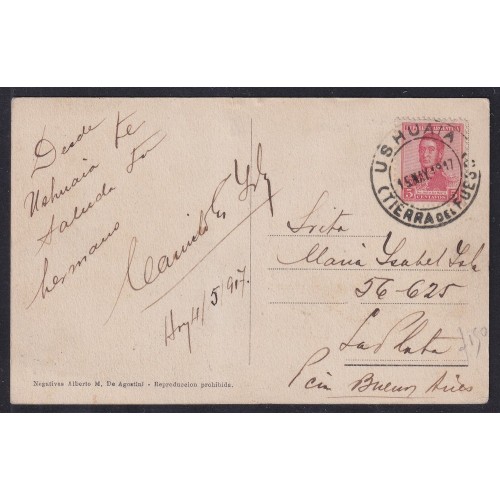 Desde
Ushuaia te
saluda tu
hermano
Hoy 4/5 917.
Negativas Alberto M. De Agostini - Reproduccion prohibida.
USHUAIA
15 MAY 1917
(TIERRA DEL FUEGO)
5 5
CENTAVOS
Srita
Maria Ysabel
56-625
La Plata
Pcia Buenos Aires